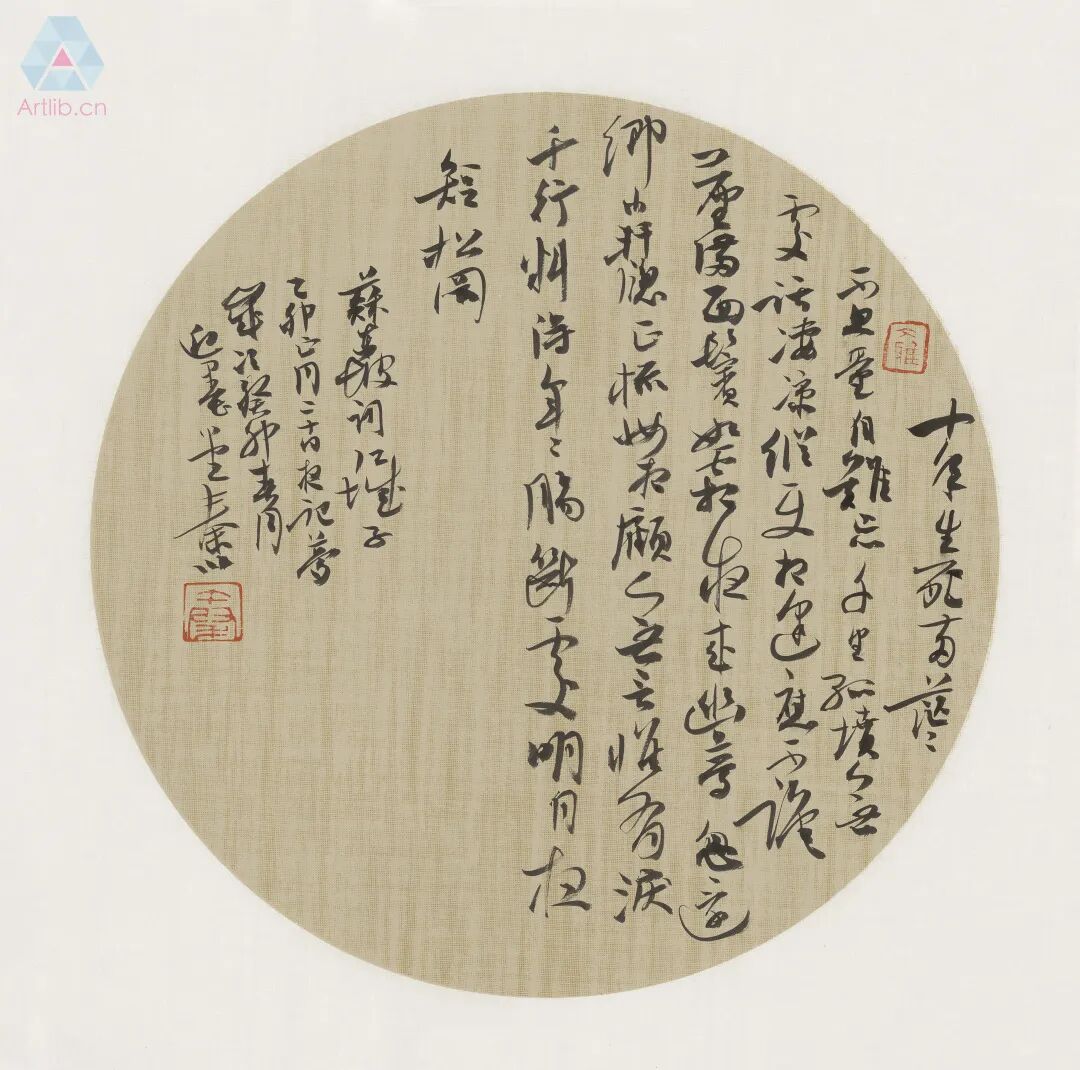 十年生死兩茫〻
不思量自難忘千里孤墳無
處話淒涼縱使相逢應不識
塵滿面鬢如霜夜來幽夢忽還
鄉小軒窗正梳妝相顧無言惟有淚
千行料得年〻腸斷處明月夜
短松岡
蘇東坡詞江城子
乙卯正月二十日夜記夢
歲次癸卯春月
Artlib.cn